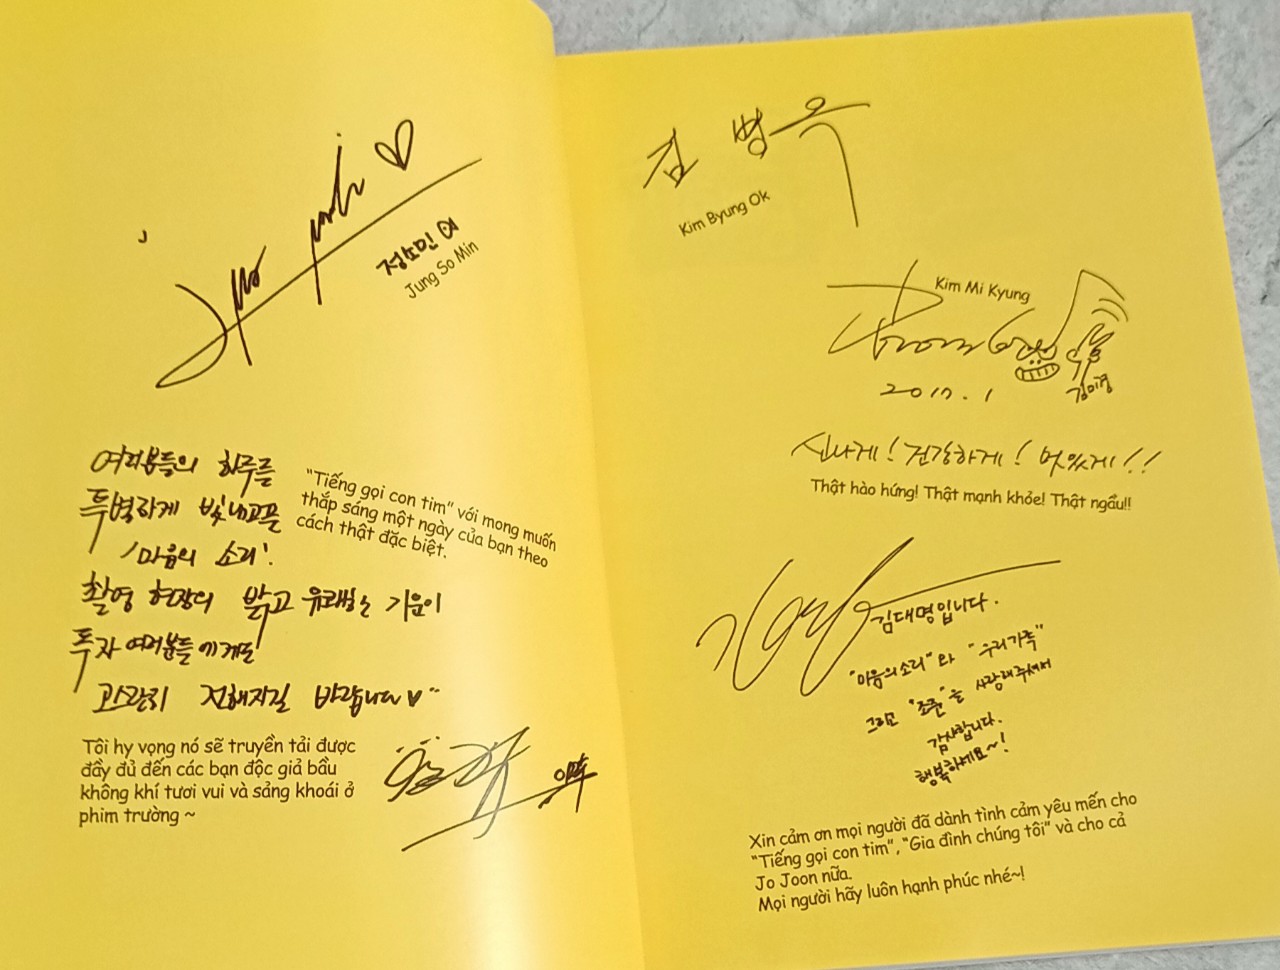 정소민
Jung So Min
여러분들의 하루를
특별하게 빛내고픈
'마음의 소리'.
"Tiếng gọi con tim" với mong muốn
thắp sáng một ngày của bạn theo
cách thật đặc biệt.
촬영 현장의 밝고 유쾌한 기운이
독자 여러분들에게도
고스란히 전해지길 바랍니다 ♥
Tôi hy vọng nó sẽ truyền tải được
đầy đủ đến các bạn độc giả bầu
không khí tươi vui và sảng khoái ở
phim trường ~
김병옥
Kim Byung Ok
Kim Mi Kyung
김미경
2017. 1
신나게! 건강하게! 멋있게!!
Thật hào hứng! Thật mạnh khỏe! Thật ngầu!!
김대명입니다.
"마음의소리"와 "우리가족"
그리고 "조준"을 사랑해주셔서
감사합니다.
행복하세요~!
Xin cảm ơn mọi người đã dành tình cảm yêu mến cho
"Tiếng gọi con tim", "Gia đình chúng tôi" và cho cả
Jo Joon nữa.
Mọi người hãy luôn hạnh phúc nhé~!